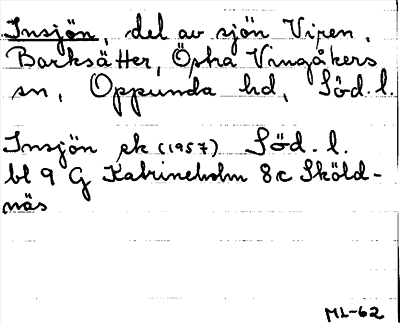 Insjön, del av sjön Viren,
Barksätter, Östra Vingåkers
sn, Oppunda hd, Söd. l.
Insjön ek (1957) Söd. l.
bl 9 G Katrineholm 8c Sköld-
näs
ML-62